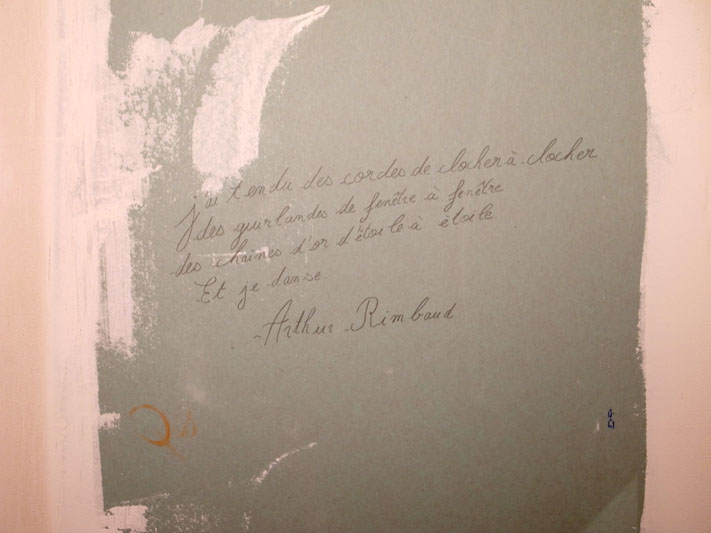 j'ai tendu des cordes de clocher à clocher
des guirlandes de fenêtre à fenêtre
des chaînes d'or d'étoile à étoile
Et je danse
Arthur Rimbaud